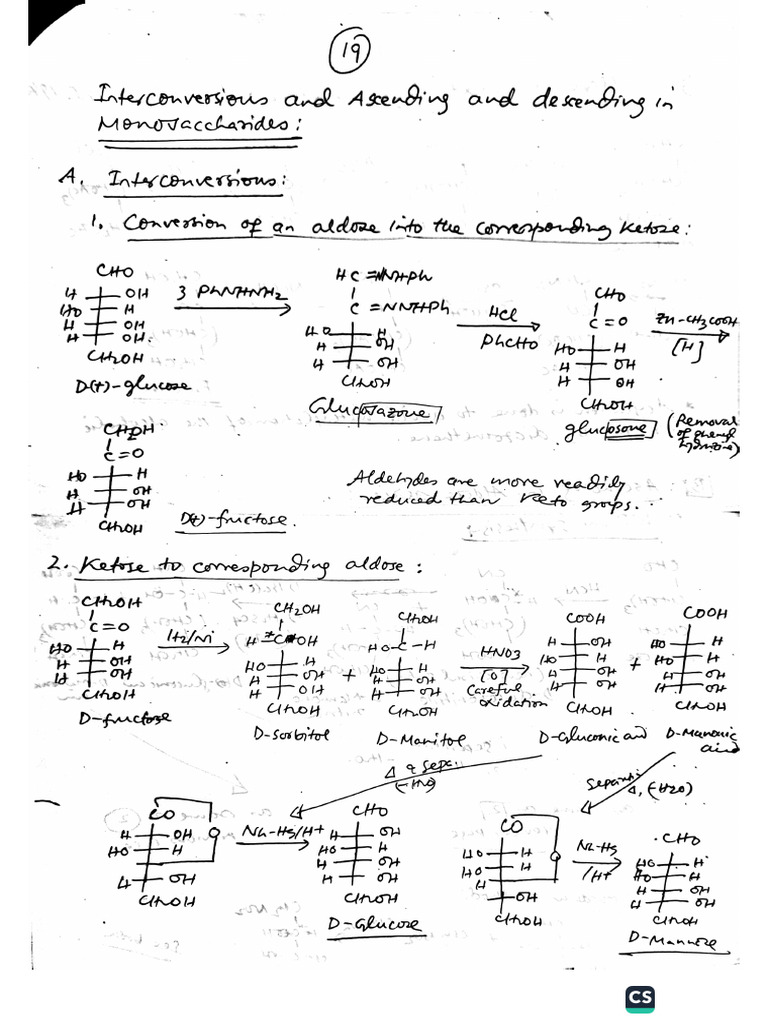 19
Interconversions and Ascending and descending in
Monosaccharides:
A. Interconversions:
1. Conversion of an aldose into the corresponding Ketose:
CHO
H OH
HO H
H OH
H OH.
CH2OH
D(+)-glucose
3 PhNHNH2
HC=NNHPh
C=NNHPh
HO H
H OH
H OH
CH2OH
Glucosazone
HCl
PhCHO
CHO
C=O
HO H
H OH
H OH
CH2OH
glucosone
(Removal
of phenyl
hydrazine)
Zn-CH3COOH
[H]
CH2OH
C=O
HO H
H OH
H OH
CH2OH
D(+)-fructose.
Aldehydes are more readily
reduced than Keto groups...
2. Ketose to corresponding aldose:
CH2OH
C=O
HO H
H OH
H OH
CH2OH
D-fructose
H2/Ni
CH2OH
H *C OH
HO H
H OH
H OH
CH2OH
D-Sorbitol
+
CH2OH
HO-C-H
HO H
H OH
H OH
CH2OH
D-Manitol
HNO3
[O]
Careful
oxidation
COOH
H OH
HO H
H OH
H OH
CH2OH
D-Gluconic acid
+
COOH
HO H
HO H
H OH
H OH
CH2OH
D-Manonic
acid
Δ & sepa.
(-H2O)
CO
H OH
HO H
H
H OH
CH2OH
O
Na-Hg/H+
CHO
H OH
HO H
H OH
H OH
CH2OH
D-Glucose
Δ, (-H2O)
CO
HO H
HO H
H
OH
CH2OH
O
Na-Hg
/H+
CHO
HO H
HO H
H OH
H OH
CH2OH
D-Mannose
CS